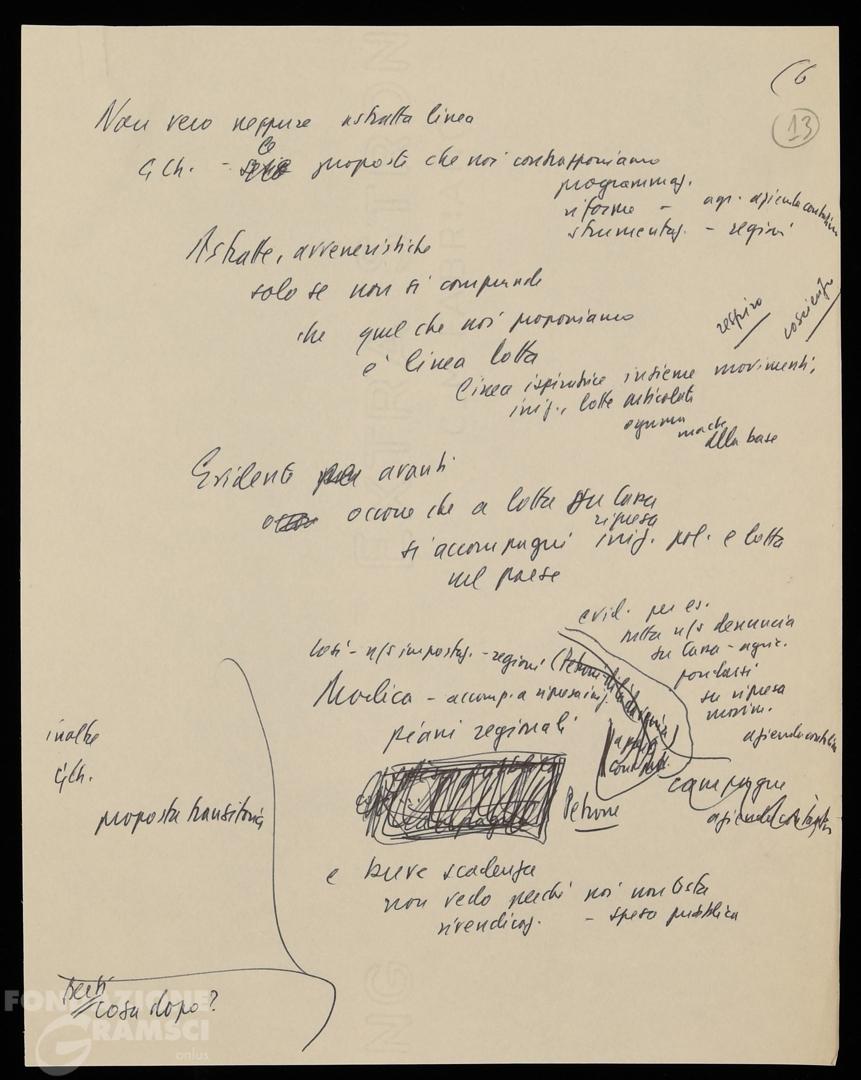 (6
13
Non vero neppure astratta linea
G.Ch. - Co proposte che noi contrapponiamo
programmaz.
riforme - agr. azienda contadina
strumentaz. - regioni
Astratte, avveneristiche
solo se non si comprende
che quel che noi proponiamo
è linea lotta
respiro
coscienza
linea ispiratrice insieme movimenti,
iniz., lotte articolate
ognuna
alla base
Evidente avanti
occorre che a lotta su Cassa
ripresa
si accompagni iniz. pol. e lotta
nel paese
evid. per es.
tutta n/s denuncia
su Cassa - agric.
su ripresa
movim.
azienda contadina
così - n/s impostaz. - regioni (Petrone
Modica - accomp. a ripresa iniz.
piani regionali
campagne
azienda contadina
Petrone
inoltre
G.Ch.
proposta transitoria
e breve scadenza
non vedo perché noi non basta
rivendicaz. - spesa pubblica
cosa dopo?
FONDAZIONE
GRAMSCI
onlus